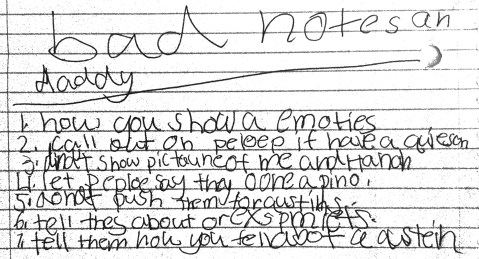 bad notes an
daddy
1. how you show a emoties
2. call out on peleep if have a quiesen
3. dont show pictaure of me and Hanah
4. let peploe say thay oone a pino.
5. do not push them for
6. tell thes about or
7. tell them how you fell abot a astein